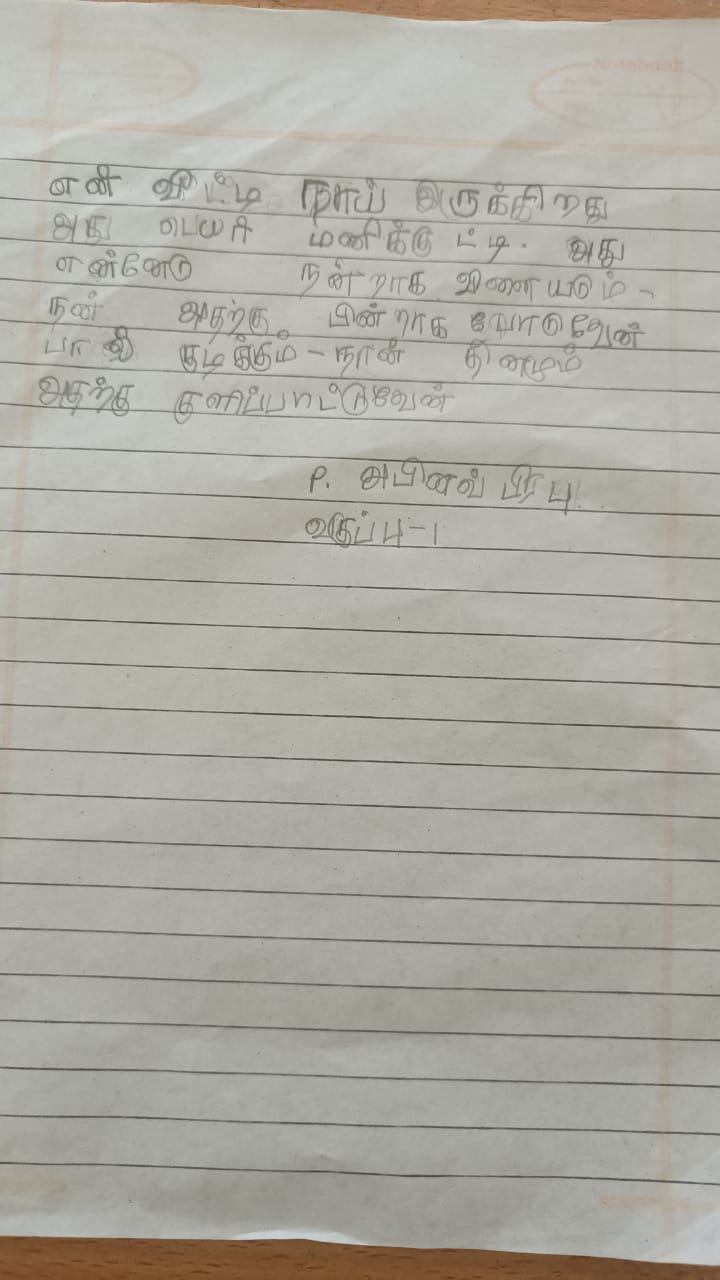 என் வீட்டி நாய் அருக்கிறது
அது பெயர் மணிக்குட்டி. அது
என்னேடு நன்றாக வினையடும்-
நன் அதற்கு பின்றாக வோடுவேன்
பால் குடிக்கும்-நான் தினமும்
அதற்கு குளிப்பாட்டுவேன்
P. அபினவ் பிரபு.
வகுப்பு-1